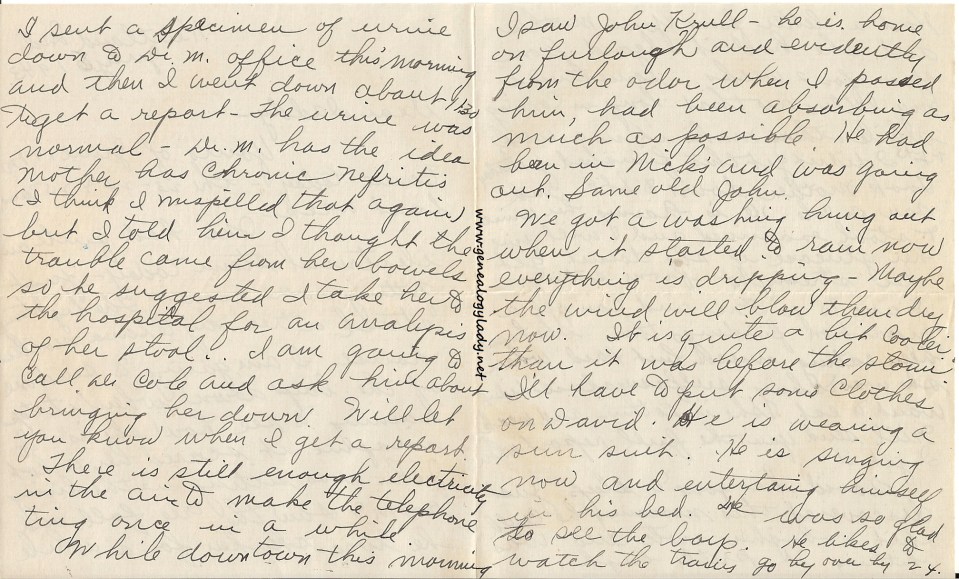 I sent a specimen of urine
down to Dr. M. office this morning
and then I went down about 1:30
to get a report - The urine was
normal - Dr. M. has the idea
mother has chronic nefritis
(I think I mispelled that again)
but I told him I thought the
trouble came from her bowels
so he suggested I take her to
the hospital for an analysis
of her stool.. I am going to
call Dr Cole and ask him about
bringing her down. Will let
you know when I get a report.
There is still enough electricity
in the air to make the telephone
ting once in a while
While downtown this morning
I saw John Krull - he is home
on furlough and evidently
from the odor when I passed
him, had been absorbing as
much as possible. He had
been in Nick's and was going
out. Same old John.
We got a washing hung out
when it started to rain now
everything is dripping - Maybe
the wind will blow them dry
now. It is quite a bit cooler
than it was before the storm
I'll have to put some clothes
on David. He is wearing a
sun suit. He is singing
now and entertaing himself
in his bed. He was so glad
to see the boys. He likes to
watch the trains go by over by 24.
www.genealogylady.net